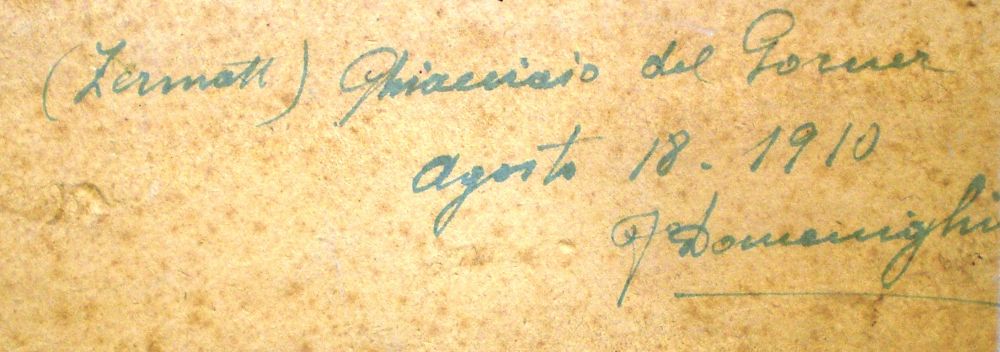 (Zermatt) Ghiacciaio del Gorner
Agosto 18. 1910
F Domenighi